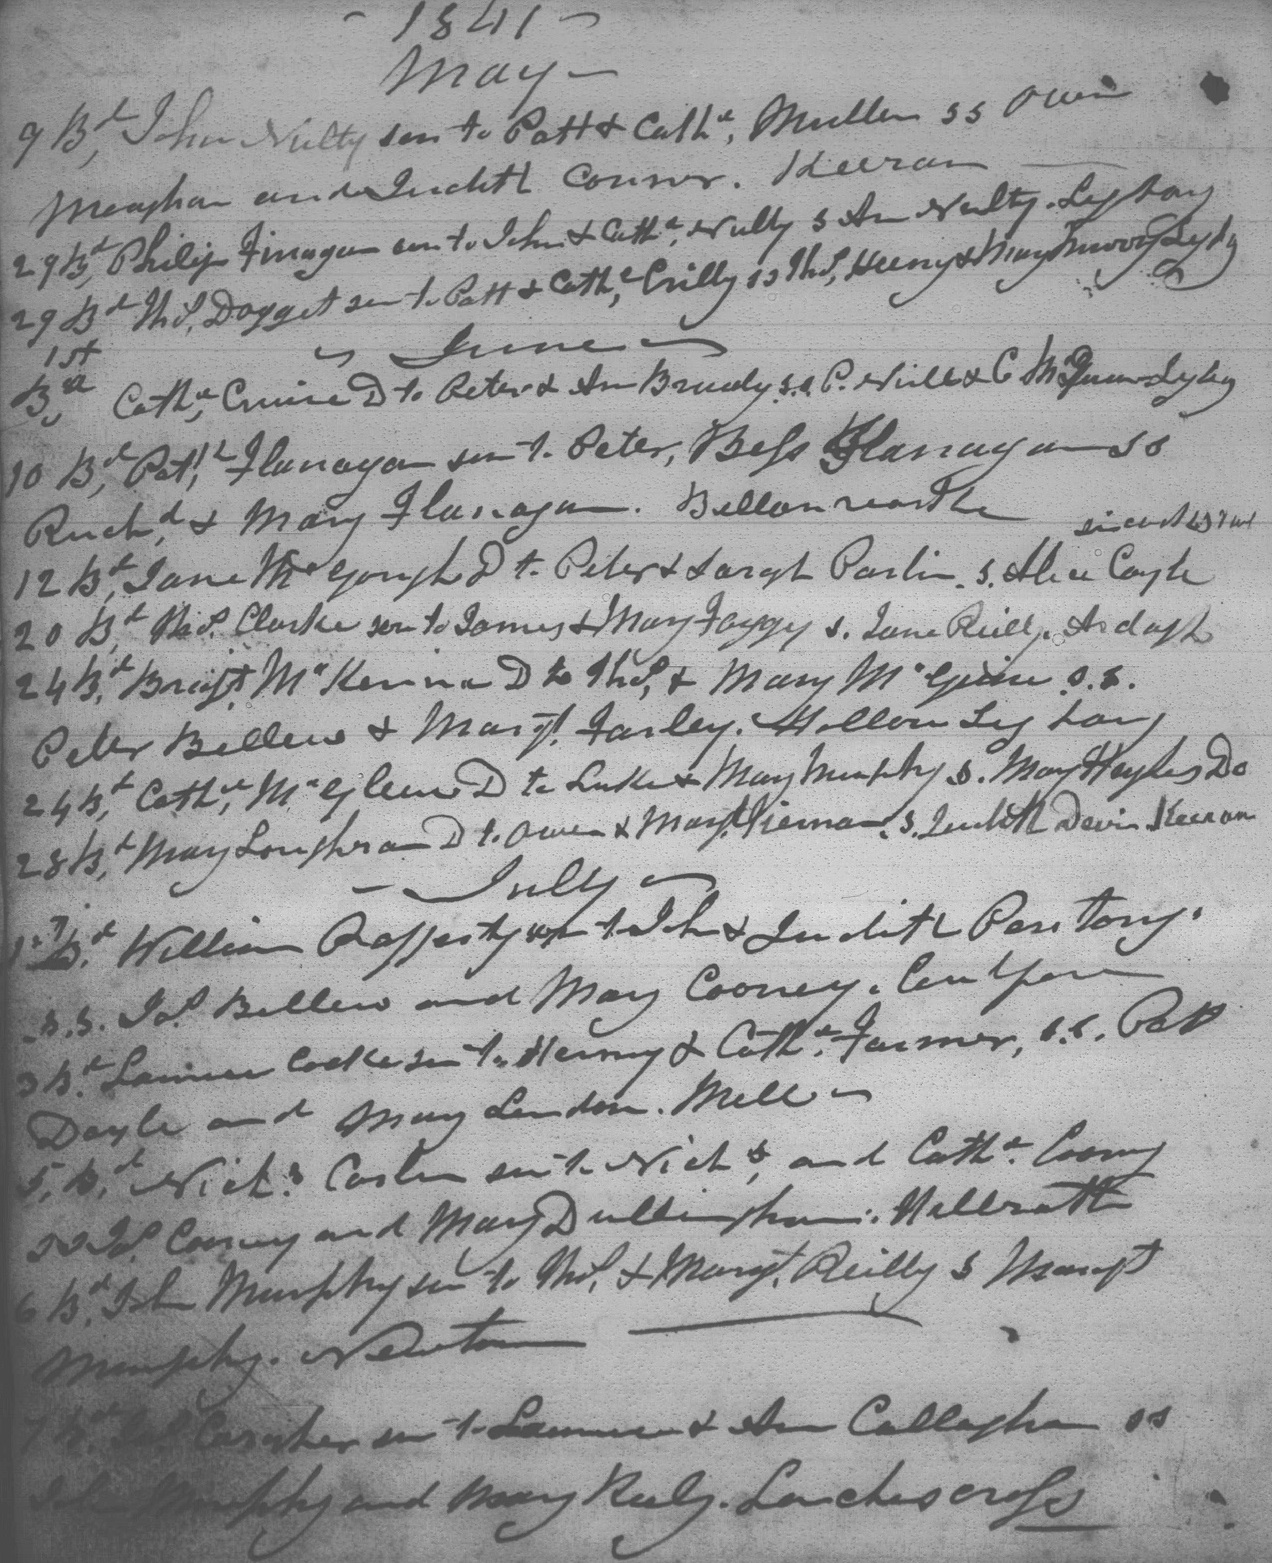 - 1841 -
May -
9 Bd, John Nulty son to Patt & Cathe, Mullen ss Owen
Meaghan and Judith Connor. Keeran
29 Bd, Philip Finagan son to John & Cathe, Nulty s An Nulty. Leghany
29 Bd Ths, Dogget son to Patt & Cathe, Crilly ss Ths, Heeny & Mary
- June -
1st
Bd, Cathe, Cruise D to Peter & An Brudy s.s. P. Neill & C
10 Bd, Patk, Flanagan son to Peter, Bess Flanagan ss
Richd, & Mary Flanagan.
12 Bd, Jane McGough D to Peter & Sargh Parlin. s. Alice Coyle
20 Bd, Ths. Clarke son to James & Mary Faggy s. Jane Reilly. Ardagh
24 B,d Brigt, McKenna D to Ths, & Mary McGuire s.s.
Peter Bellew & Margt. Farley. Leghany
24 B,d Cathe, McGlew D to Luke & Mary Murphy s. Mary Hughes Do
28 B,d Mary Loughran D to Owen & Mary Tiernan. s. Judith Devin Keeran
- July -
1st Bd. William Rafferty son to John & Judith
s.s. Jas Bellew and Mary Cooney.
3 Bd. Laurence Cooke son to Henny & Cathe. Farmer, s.s. Patt
Doyle and Mary Lendon. Mell
5, B,d Nichs Carlin son to Nichs, and Cathe. Coony
ss Js. Coony and Mary Dullingham. Hellrath
6 Bd. John Murphy son to Ths, & Margt. Reilly s Margt
Murphy. Newton
7 Bd. Caragher son to Laurence & Ann Callaghan ss
John Murphy and Mary Rely. Lenchscross